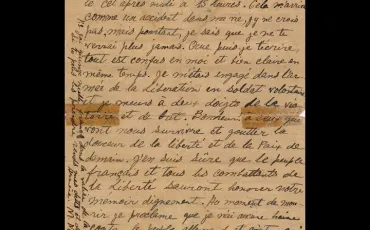 te cet après midi à 15 heures. Cela m'arrive
comme un accident dans ma vie, j'y ne crois
pas, mais pourtant, je sais que je ne te
verrai plus jamais. Que puis-je t'écrire,
tout est confus en moi et bien claire en
même temps. Je m'étais engagé dans l'ar-
mée de la Libération en soldat volontaire
et je meurs à deux doigts de la vic-
toire et de but. Bonheur! à ceux qui
vont nous survivre et goutter la
douceur de la liberté et de la Paix de
demain. J'en suis sûre que le peuple
français et tous les combattants de
la Liberté sauront honorer notre
memoir dignement. Au moment de mou-
rir je proclame que je n'ai aucune haine
contre le peuple allemand et